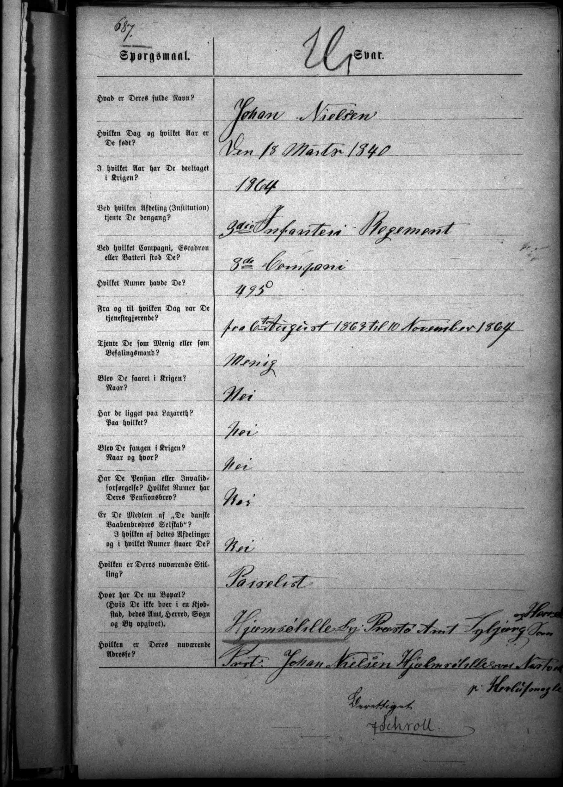 687.
Spørgsmaal.
Svar.
Hvad er Deres fulde Navn?
Johan Nielsen
Hvilken Dag og hvilket Aar er
De født?
Den 18 Marts 1840
I hvilket Aar har De deeltaget
i Krigen?
1864
Ved hvilken Afdeling (Institution)
tjente De dengang?
3die Infanteri Regement
Ved hvilket Compagni, Escadron
eller Batteri stod De?
3de Compani
Hvilket Numer havde De?
495
Fra og til hvilken Dag var De
tjenestegjørende?
fra 6te August 1863 til 10 November 1864
Tjente De som Menig eller som
Befalingsmand?
Menig
Blev De saaret i Krigen?
Naar?
Nei
Har de ligget paa Lazareth?
Paa hvilket?
Nei
Blev De fangen i Krigen?
Naar og hvor?
Nei
Har De Pension eller Invalid-
forsørgelse? Hvilket Numer har
Deres Pensionsbrev?
Nei
Er De Medlem af „De danske
Vaabenbrødres Selskab"?
I hvilken af dettes Afdelinger
og i hvilket Numer staaer De?
Nei
Hvilken er Deres nuværende Stil-
ling?
Parselist
Hvor har De nu Bopæl?
(Hvis De ikke boer i en Kjøb-
stad, bedes Amt, Herred, Sogn
og By opgivet).
Hjelmsølille By Præstø Amt Tybjerg
Hvilken er Deres nuværende
Adresse?
Johan Nielsen Hjelmsølille
p Herlufmagle
Schroll.